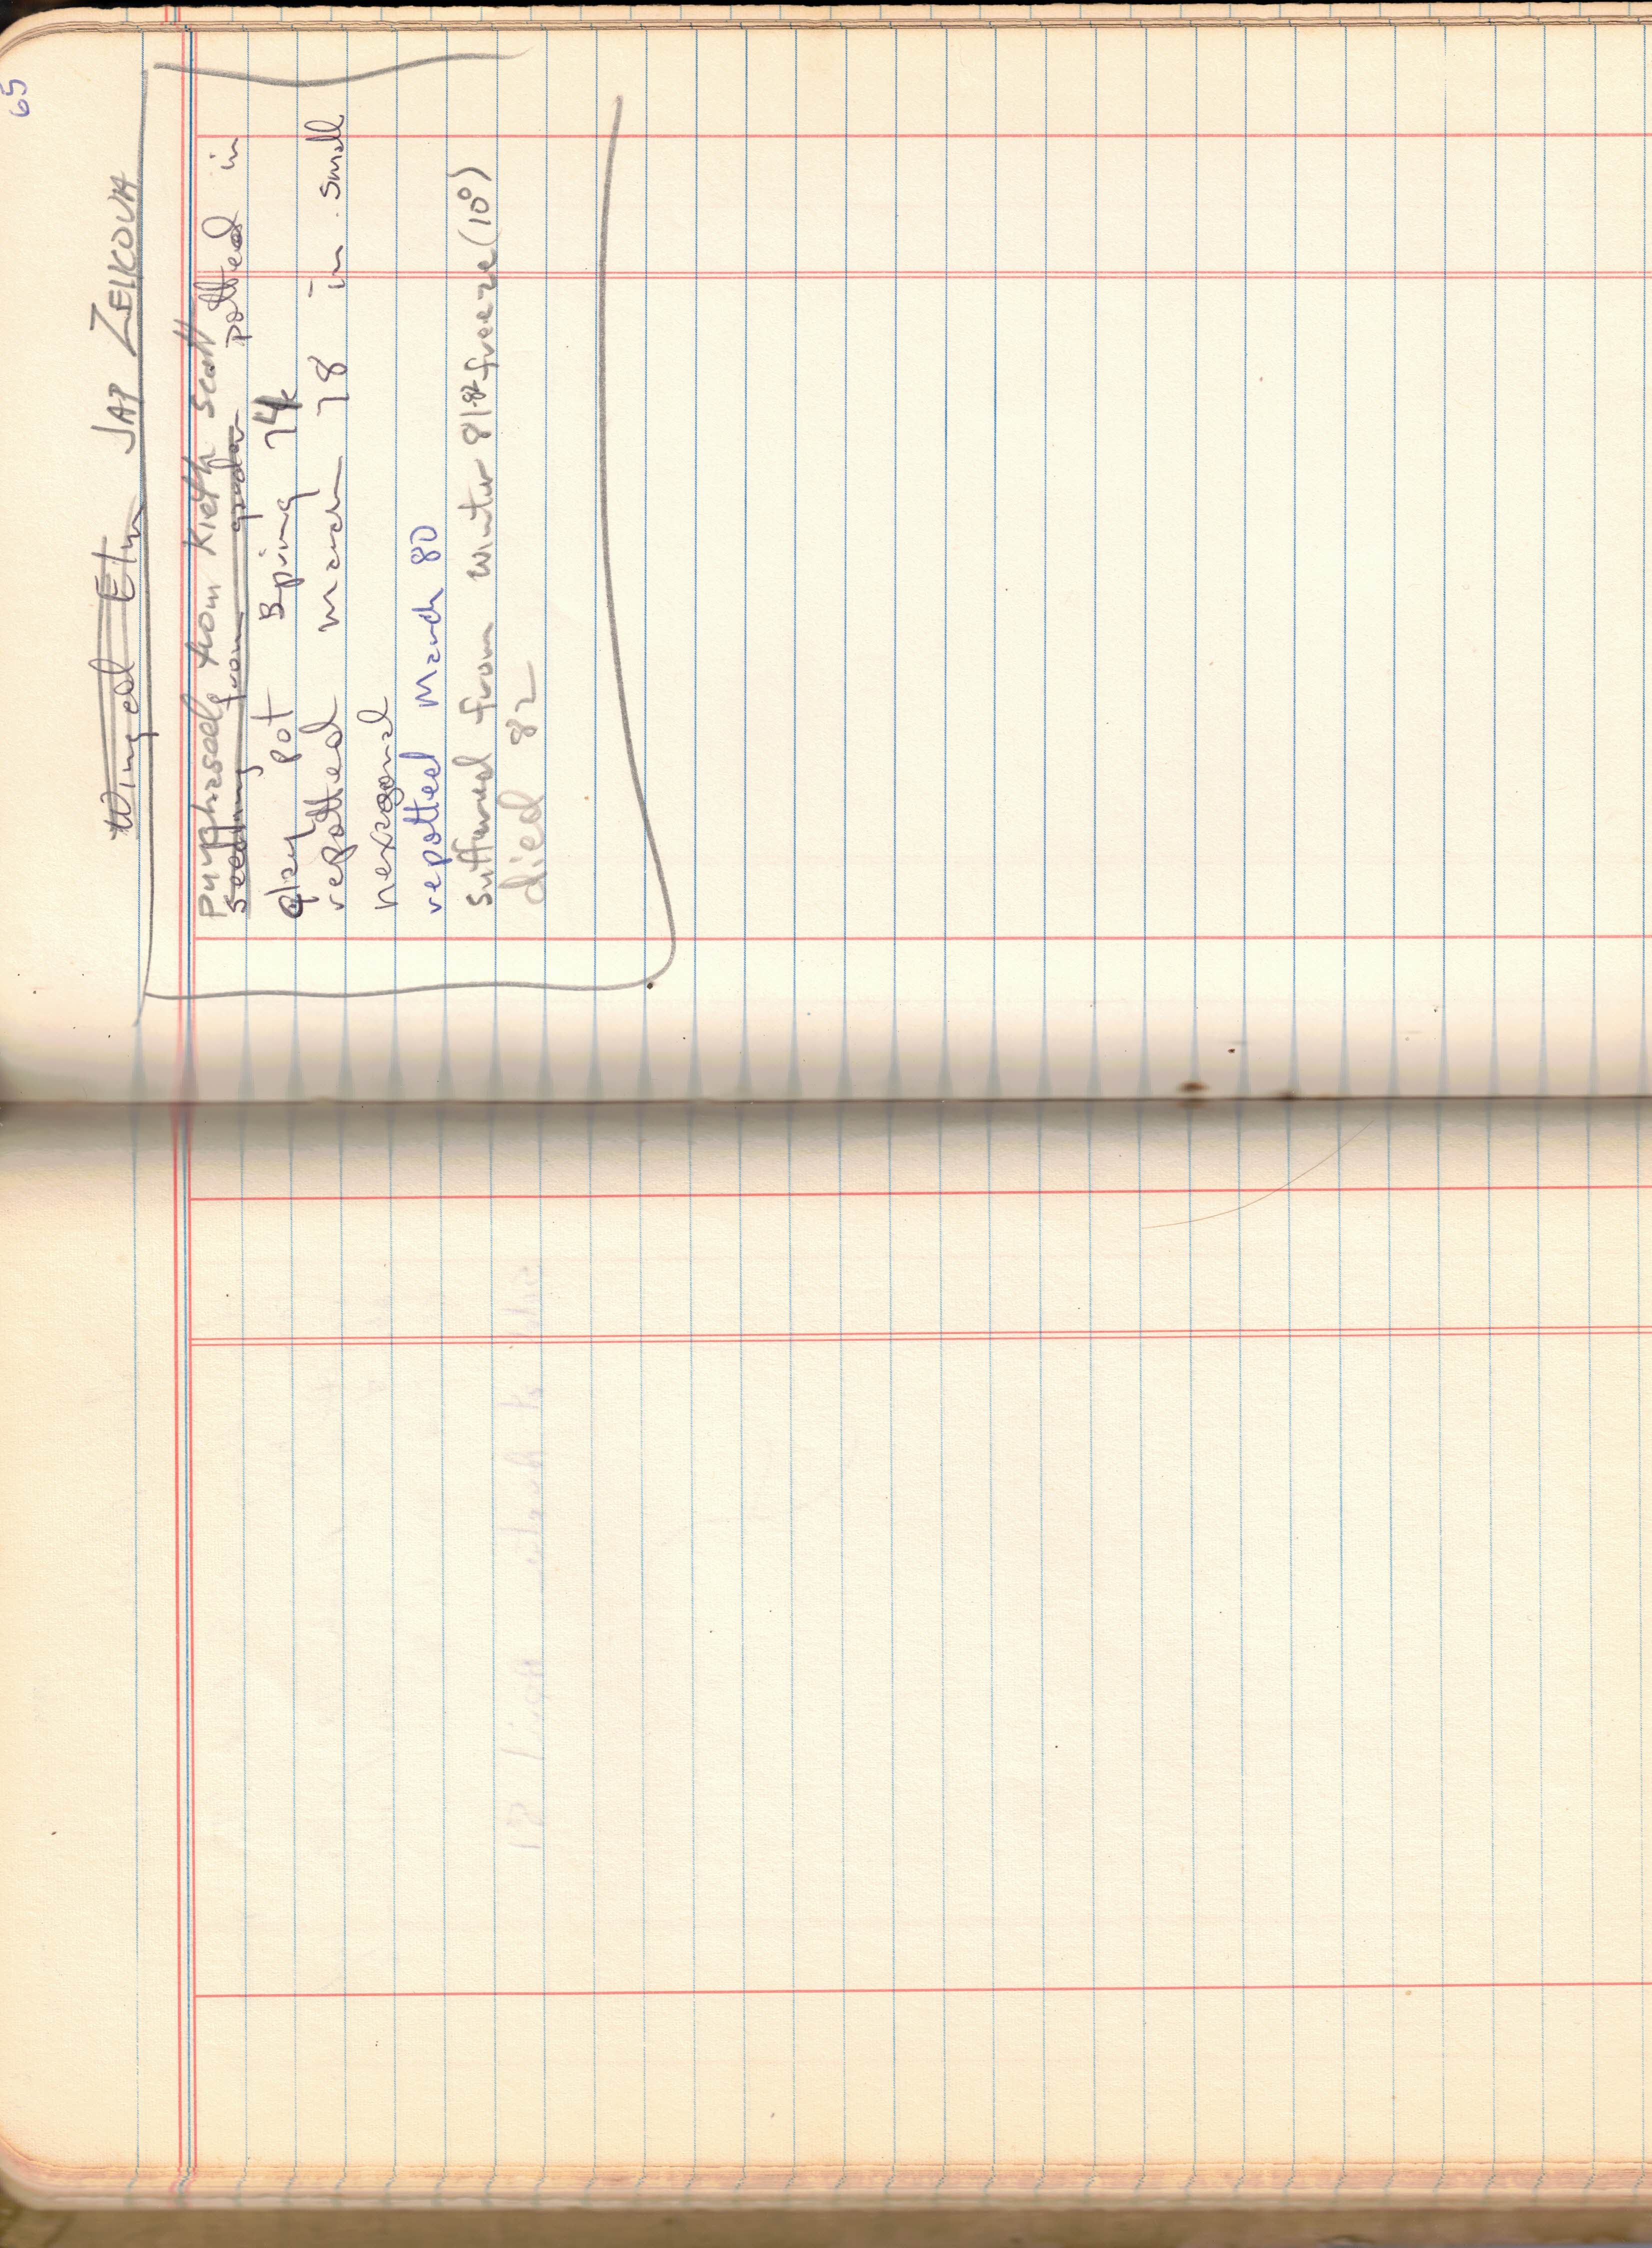 65
Winged Elm JAP ZELKOVA
purchased from Kieth Scott
seedling from garden potted in
clay pot Spring 74
repotted March 78 in small
hexagonal
repotted March 80
suffered from winter 81-82 freeze (10°)
died 82